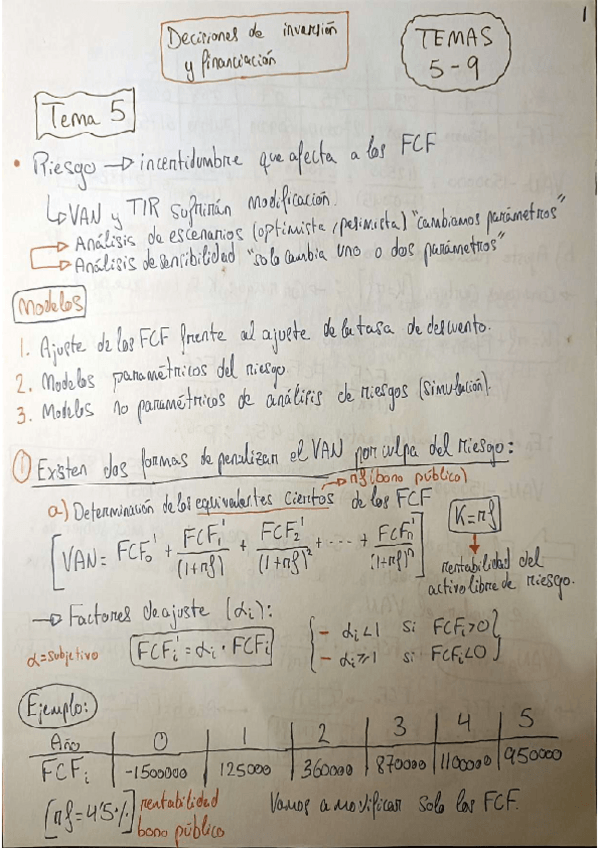 1
Decisiones de inversión
y financiación
TEMAS
5-9
Tema 5
• Riesgo → incertidumbre que afecta a los FCF
↳ VAN y TIR sufrirán modificación.
→ Análisis de escenarios (optimista, pesimista) "cambiamos parámetros"
→ Análisis de sensibilidad "solo cambia uno o dos parámetros"
Modelos
1. Ajuste de los FCF frente al ajuste de la tasa de descuento.
2. Modelos paramétricos del riesgo.
3. Modelos no paramétricos de análisis de riesgos (simulación).
① Existen dos formas de penalizar el VAN por culpa del riesgo:
→ rf (bono público)
a) Determinación de los equivalentes ciertos de los FCF
[VAN = FCF₀' + FCF₁'/(1+rf) + FCF₂'/(1+rf)² + ---- + FCFₙ'/(1+rf)ⁿ]
K = rf
rentabilidad del
activo libre de riesgo.
→ Factores de ajuste (αᵢ):
α = subjetivo
FCFᵢ' = αᵢ · FCFᵢ
{- αᵢ < 1 si FCFᵢ > 0}
{- αᵢ ≥ 1 si FCFᵢ < 0}
Ejemplo:
Año | 0 | 1 | 2 | 3 | 4 | 5
FCFᵢ | -1500000 | 125000 | 360000 | 870000 | 1100000 | 950000
[rf = 4'5%] rentabilidad
bono público
Vamos a modificar solo los FCF.